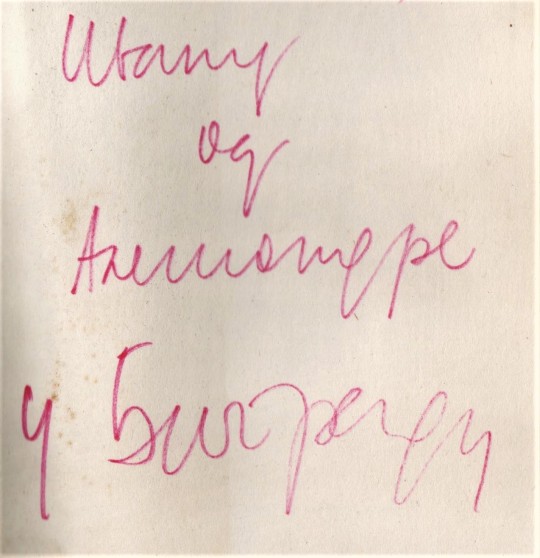 Ивану
од
Александре
у Београду